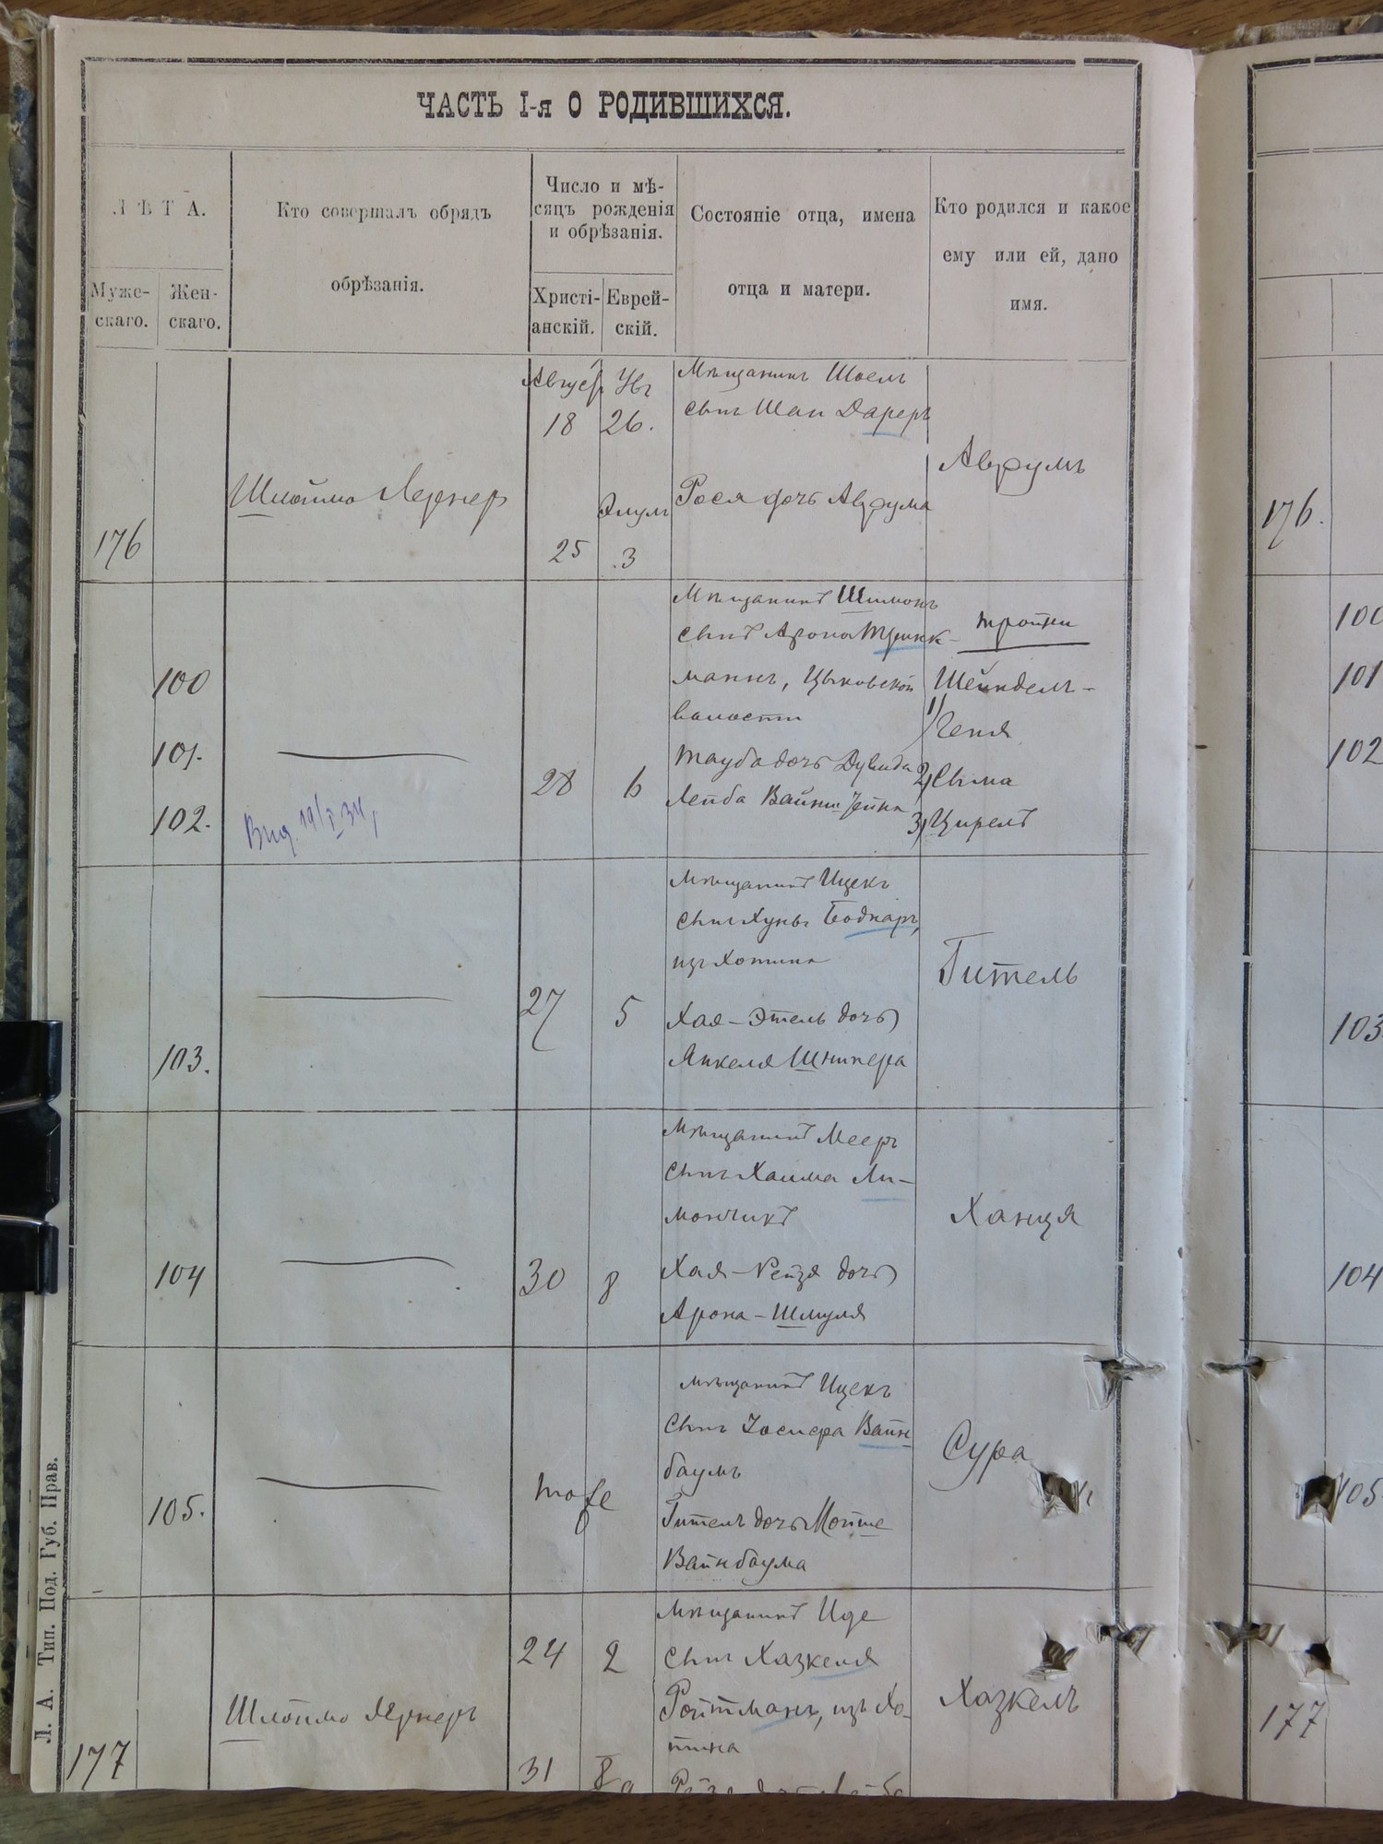 ЧАСТЬ I-я О РОДИВШИХСЯ.
Л Ѣ Т А.
Муже-
скаго.
Жен-
скаго.
Кто совершалъ обрядъ
обрѣзанія.
Число и мѣ-
сяцъ рожденія
и обрѣзанія.
Христі-
анскій.
Еврей-
скій.
Состояніе отца, имена
отца и матери.
Кто родился и какое
ему или ей, дано
имя.
176
Шлойма Лернер
Август
18
26.
Элул
25
3
Мѣщанинъ Шоелъ
сынъ Шаи Дареръ
Рося дочь Аврума
Аврумъ
176.
100
101.
102.
28
6
Мѣщанинъ Шимонъ
сынъ Арона Тринк-
манъ, Цыковской
волости
Тауба дочь Дувида
Лейба Вайнштейна
тройни
Шейндель-
1) Геня
2) Сыма
3) Цирель
100
101
102
103.
27
5
Мѣщанинъ Ицекъ
сынъ Хуны Боднаръ,
изъ Хотина
Хая-Этель дочь
Янкеля Шнипера
Гитель
103
104
30
8
Мѣщанинъ Мееръ
сынъ Хаима Ли-
мончикъ
Хая-Рейзя дочь
Арона-Шмуля
Ханця
104
105.
тоже
Мѣщанинъ Ицекъ
сынъ Іосифа Вайн-
баумъ
Гитель дочь Мойше
Вайнбаума
Сура
105
177
Шлойма Лернеръ
24
2
31
Мѣщанинъ Иде
сынъ Хазкеля
Ройтманъ, изъ Хо-
тина
Хазкелъ
177
Л. А. Тип. Под. Губ. Прав.